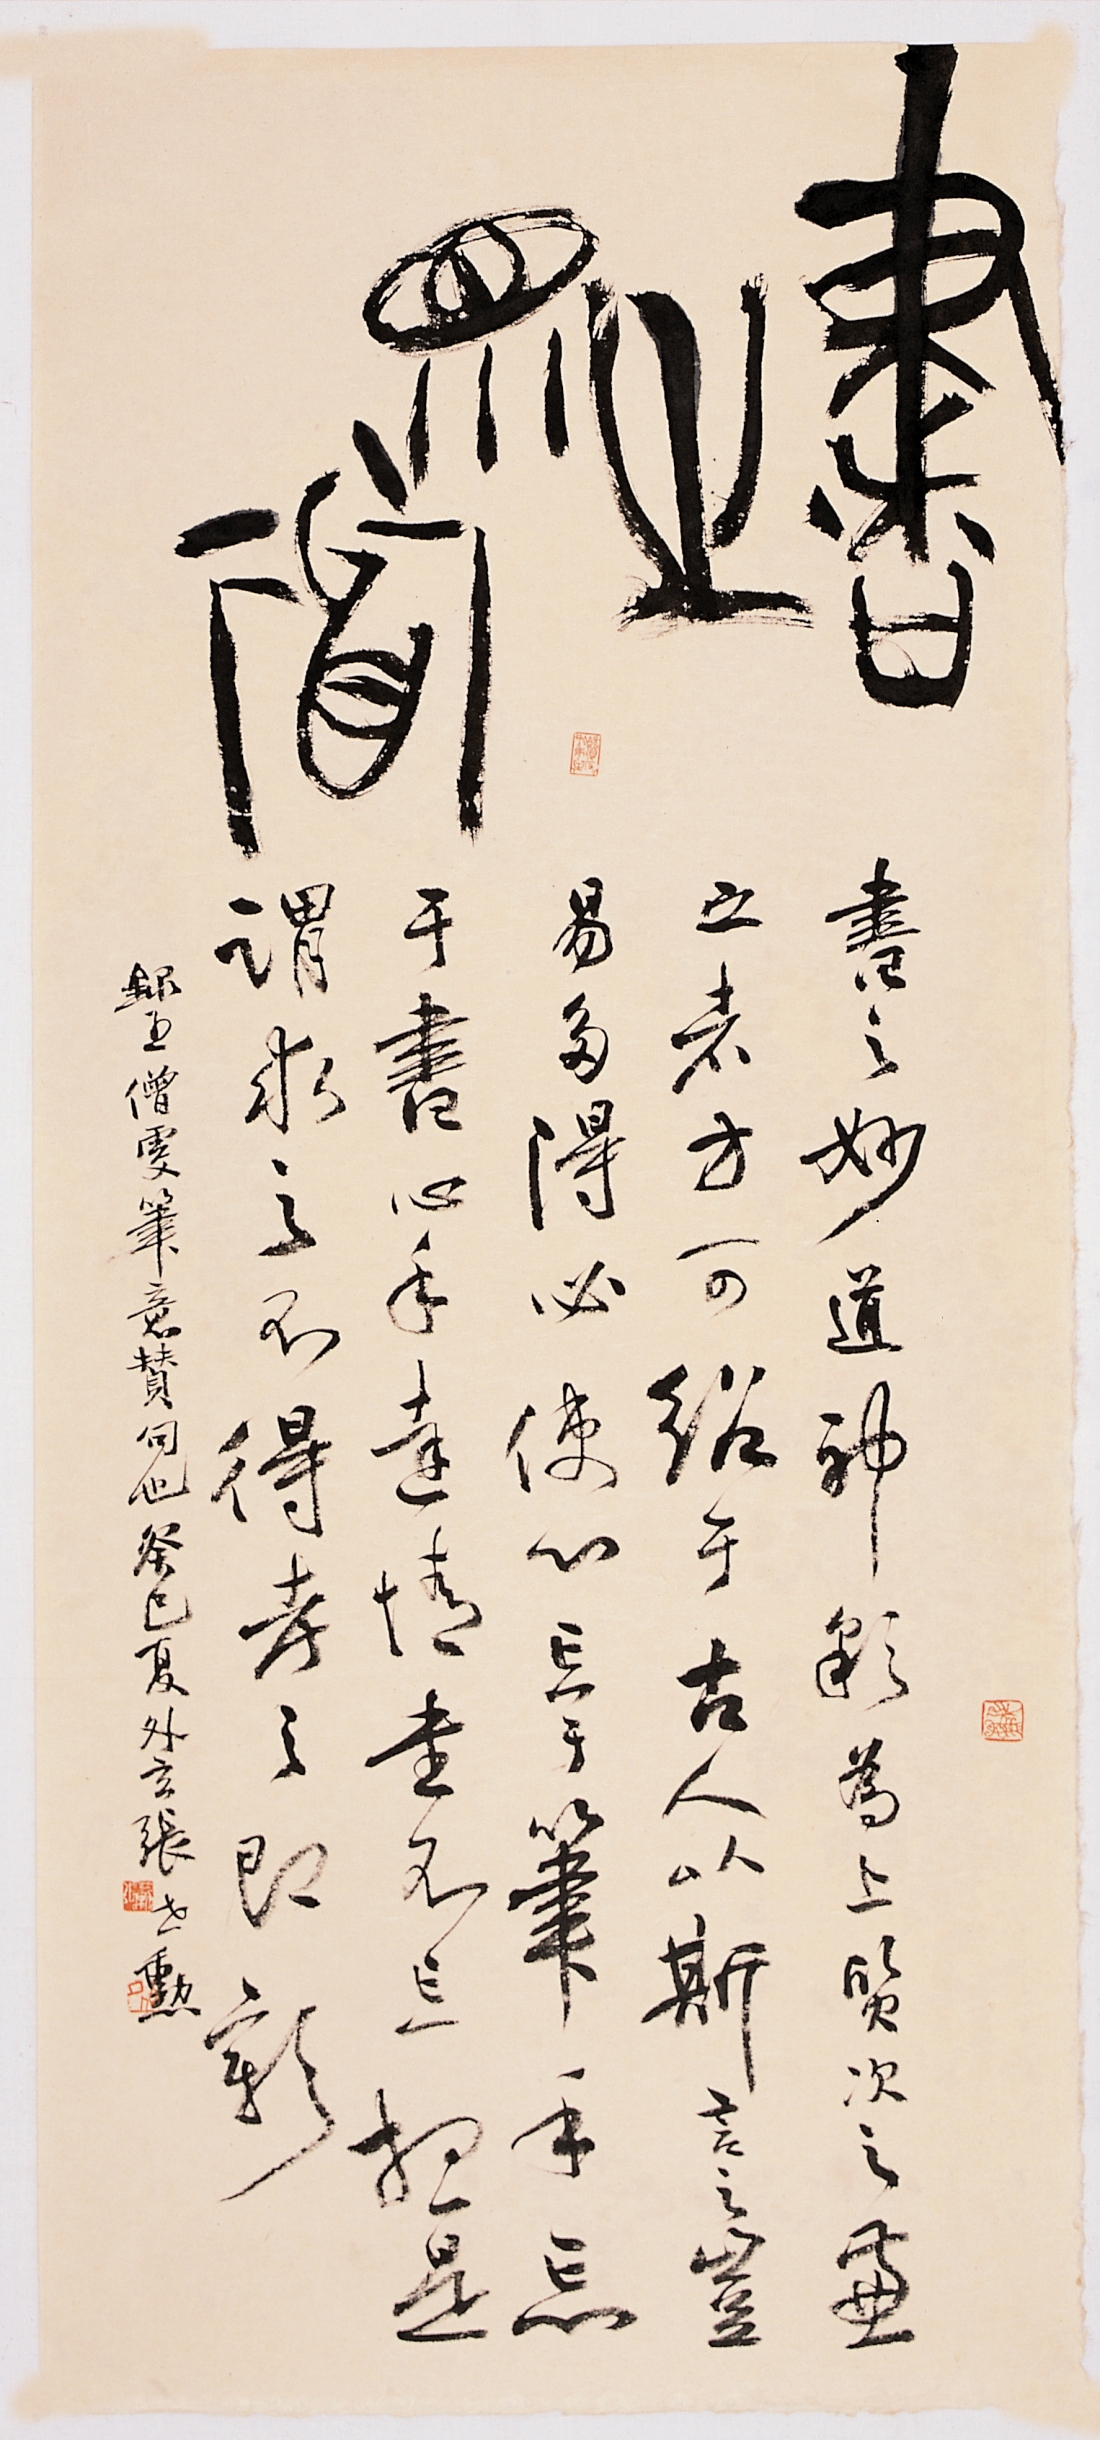 書
書之妙道神彩為上質次之兼
之者方可紹于古人以斯言之豈
易多得必使心忘于筆手忘
于書心手達情書不忘想是
謂求之不得考之即彰
錄王僧虔筆意贊句也癸巳夏外玄張世勳